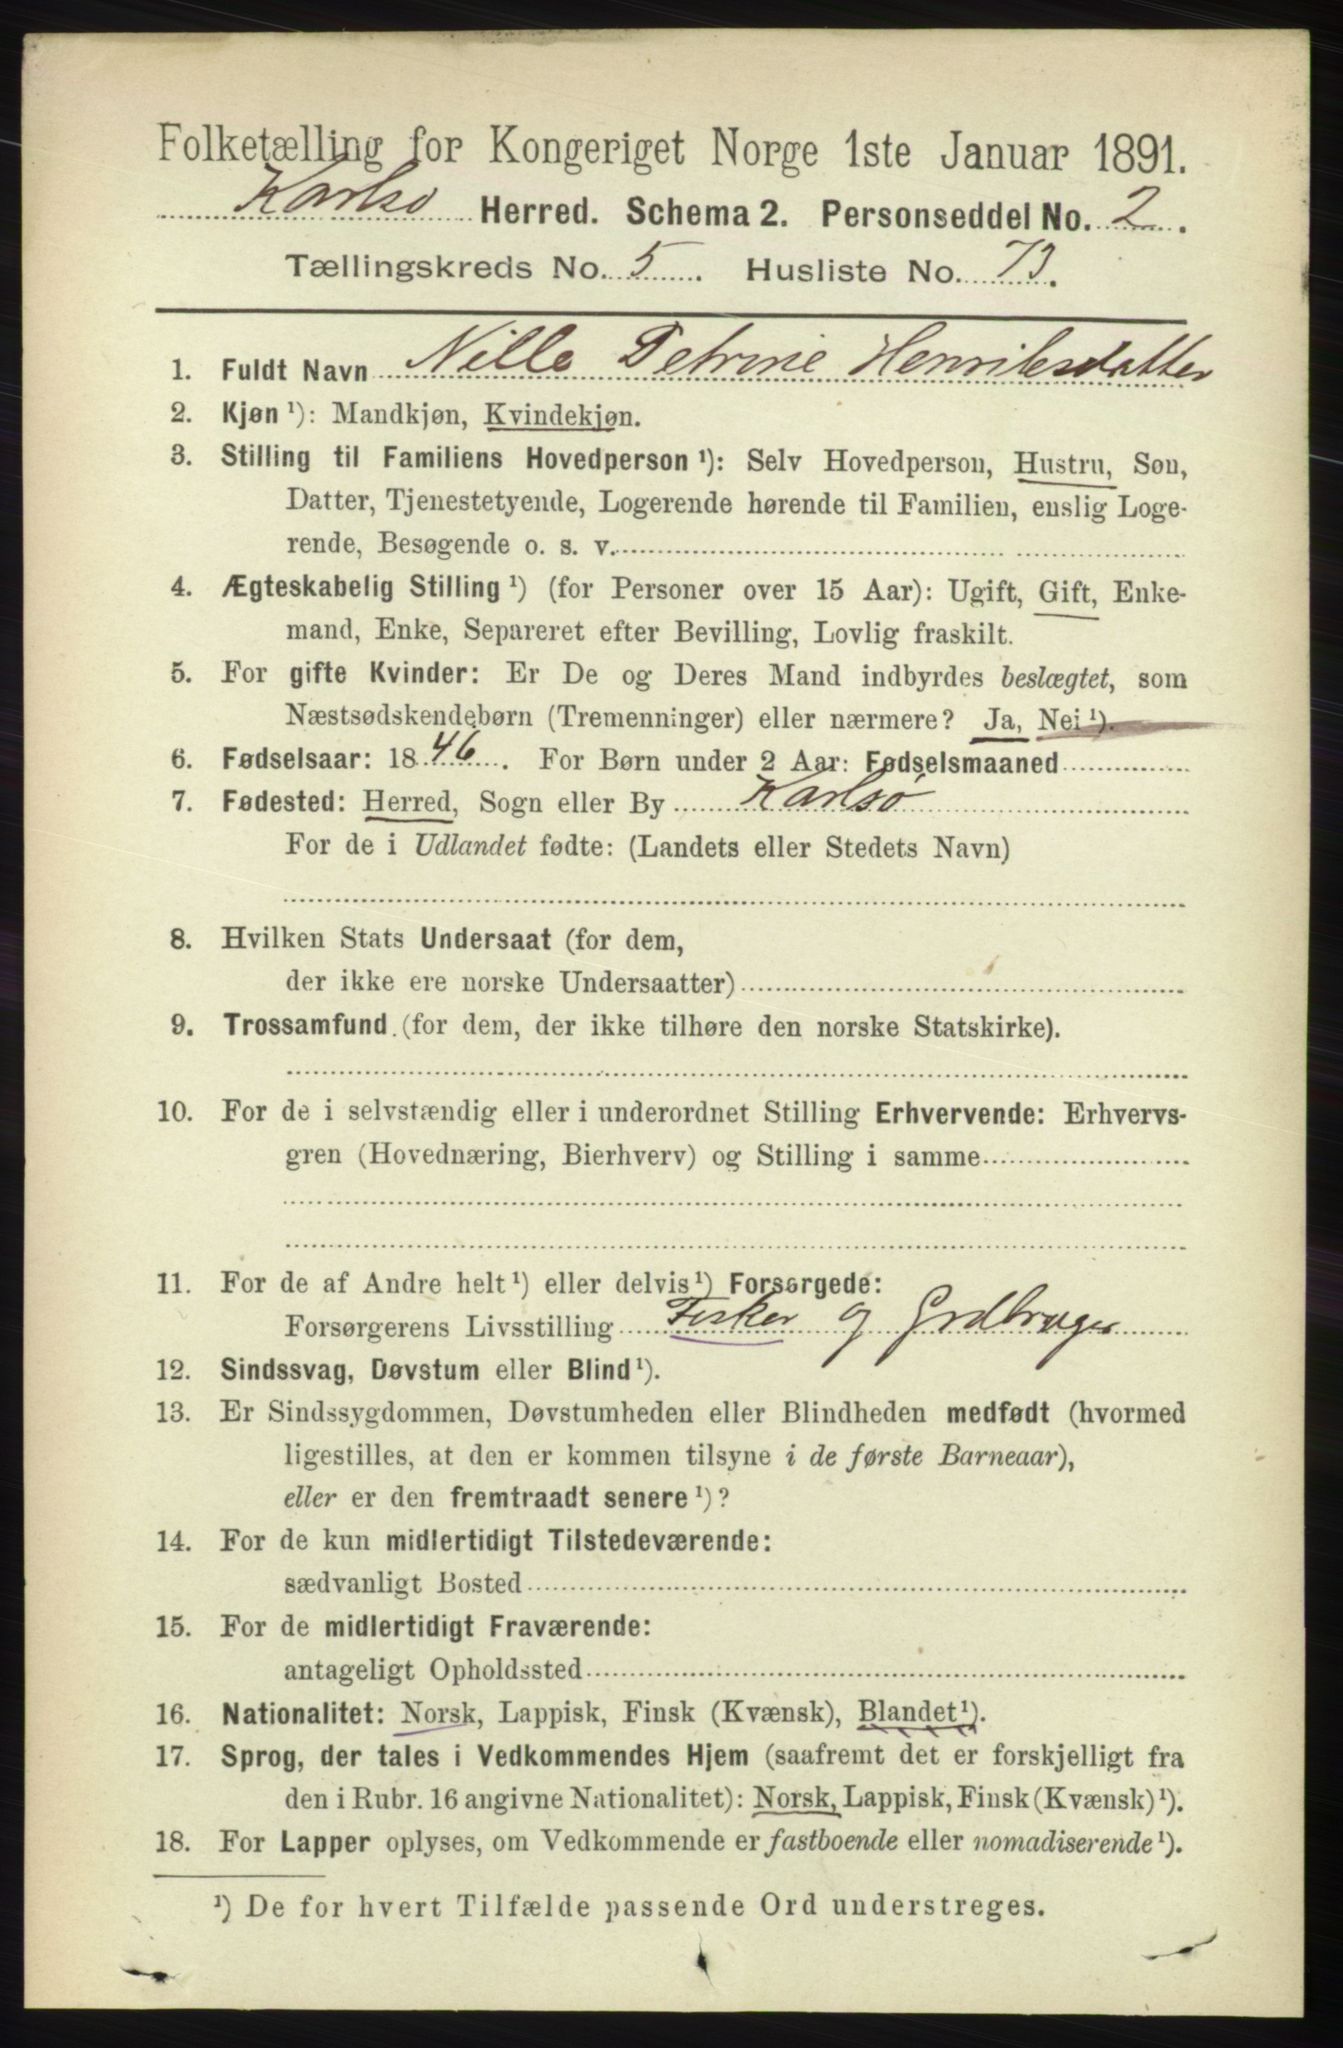 Folketælling for Kongeriget Norge 1ste Januar 1891.
Karlsø Herred. Schema 2. Personseddel No. 2.
Tællingskreds No. 5. Husliste No. 73.
1. Fuldt Navn Nille Petrine Henriksdatter
2. Kjøn ¹): Mandkjøn, Kvindekjøn.
3. Stilling til Familiens Hovedperson ¹): Selv Hovedperson, Hustru, Søn,
Datter, Tjenestetyende, Logerende hørende til Familien, enslig Loge-
rende, Besøgende o. s. v.
4. Ægteskabelig Stilling ¹) (for Personer over 15 Aar): Ugift, Gift, Enke-
mand, Enke, Separeret efter Bevilling, Lovlig fraskilt.
5. For gifte Kvinder: Er De og Deres Mand indbyrdes beslægtet, som
Næstsødskendebørn (Tremenninger) eller nærmere? Ja, Nei ¹).
6. Fødselsaar: 1846. For Børn under 2 Aar: Fødselsmaaned
7. Fødested: Herred, Sogn eller By Karlsø
For de i Udlandet fødte: (Landets eller Stedets Navn)
8. Hvilken Stats Undersaat (for dem,
der ikke ere norske Undersaatter)
9. Trossamfund (for dem, der ikke tilhøre den norske Statskirke).
10. For de i selvstændig eller i underordnet Stilling Erhvervende: Erhvervs-
gren (Hovednæring, Bierhverv) og Stilling i samme
11. For de af Andre helt ¹) eller delvis ¹) Forsørgede:
Forsørgerens Livsstilling Fisker og Grdbruger
12. Sindssvag, Døvstum eller Blind ¹).
13. Er Sindssygdommen, Døvstumheden eller Blindheden medfødt (hvormed
ligestilles, at den er kommen tilsyne i de første Barneaar),
eller er den fremtraadt senere ¹)?
14. For de kun midlertidigt Tilstedeværende:
sædvanligt Bosted
15. For de midlertidigt Fraværende:
antageligt Opholdssted
16. Nationalitet: Norsk, Lappisk, Finsk (Kvænsk), Blandet ¹).
17. Sprog, der tales i Vedkommendes Hjem (saafremt det er forskjelligt fra
den i Rubr. 16 angivne Nationalitet): Norsk, Lappisk, Finsk (Kvænsk) ¹).
18. For Lapper oplyses, om Vedkommende er fastboende eller nomadiserende ¹).
¹) De for hvert Tilfælde passende Ord understreges.